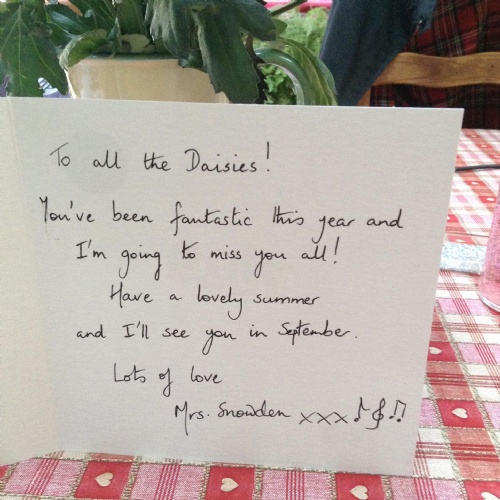 To all the Daisies!
You've been fantastic this year and
I'm going to miss you all!
Have a lovely summer
and I'll see you in September.
Lots of love
Mrs. Snowden xxx